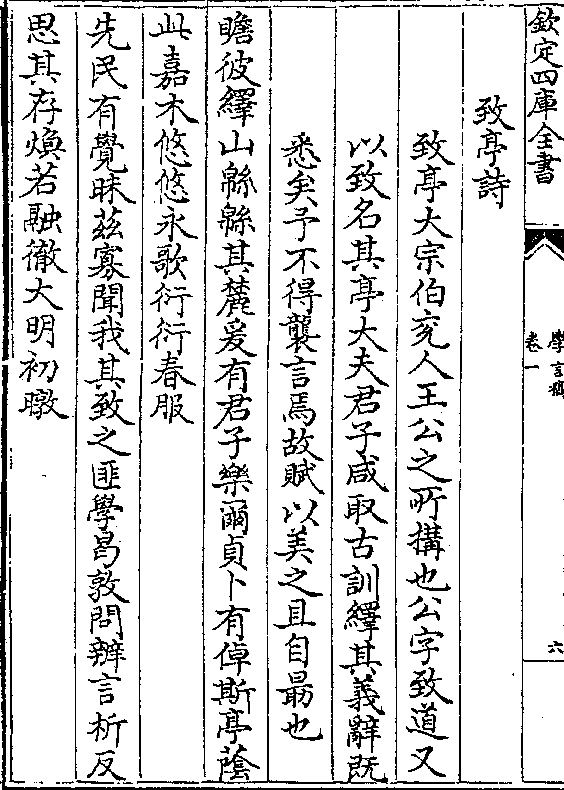 欽定四庫全書
學言稿
卷一
六
致亭詩
致亭大宗伯兖人王公之所搆也公字致道又
以致名其亭大夫君子咸取古訓繹其義辭既
悉矣予不得襲言焉故賦以美之且自勗也
瞻彼繹山緜緜其麓爰有君子樂爾貞卜有倬斯亭蔭
此嘉木悠悠永歌衎衎春服
先民有覺昧茲寡聞我其致之匪學曷敦問辨言析反
思其存煥若融徹大明初暾